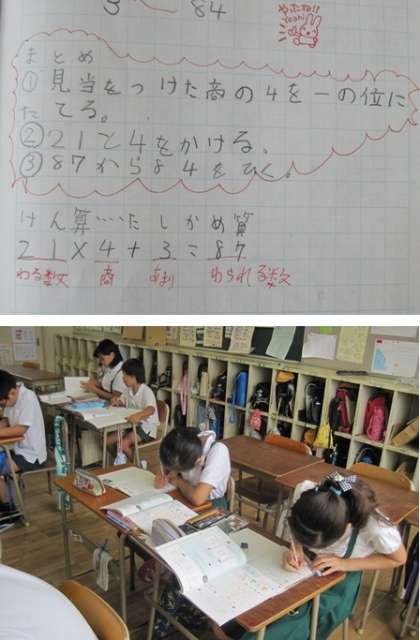 3 84
やったね!!
Yeah!
まとめ
①見当をつけた商の4を一の位に
たてる。
②21と4をかける、
③87から84をひく。
けん算……たしかめ算
21×4+3=87
わる数 商 あまり わられる数